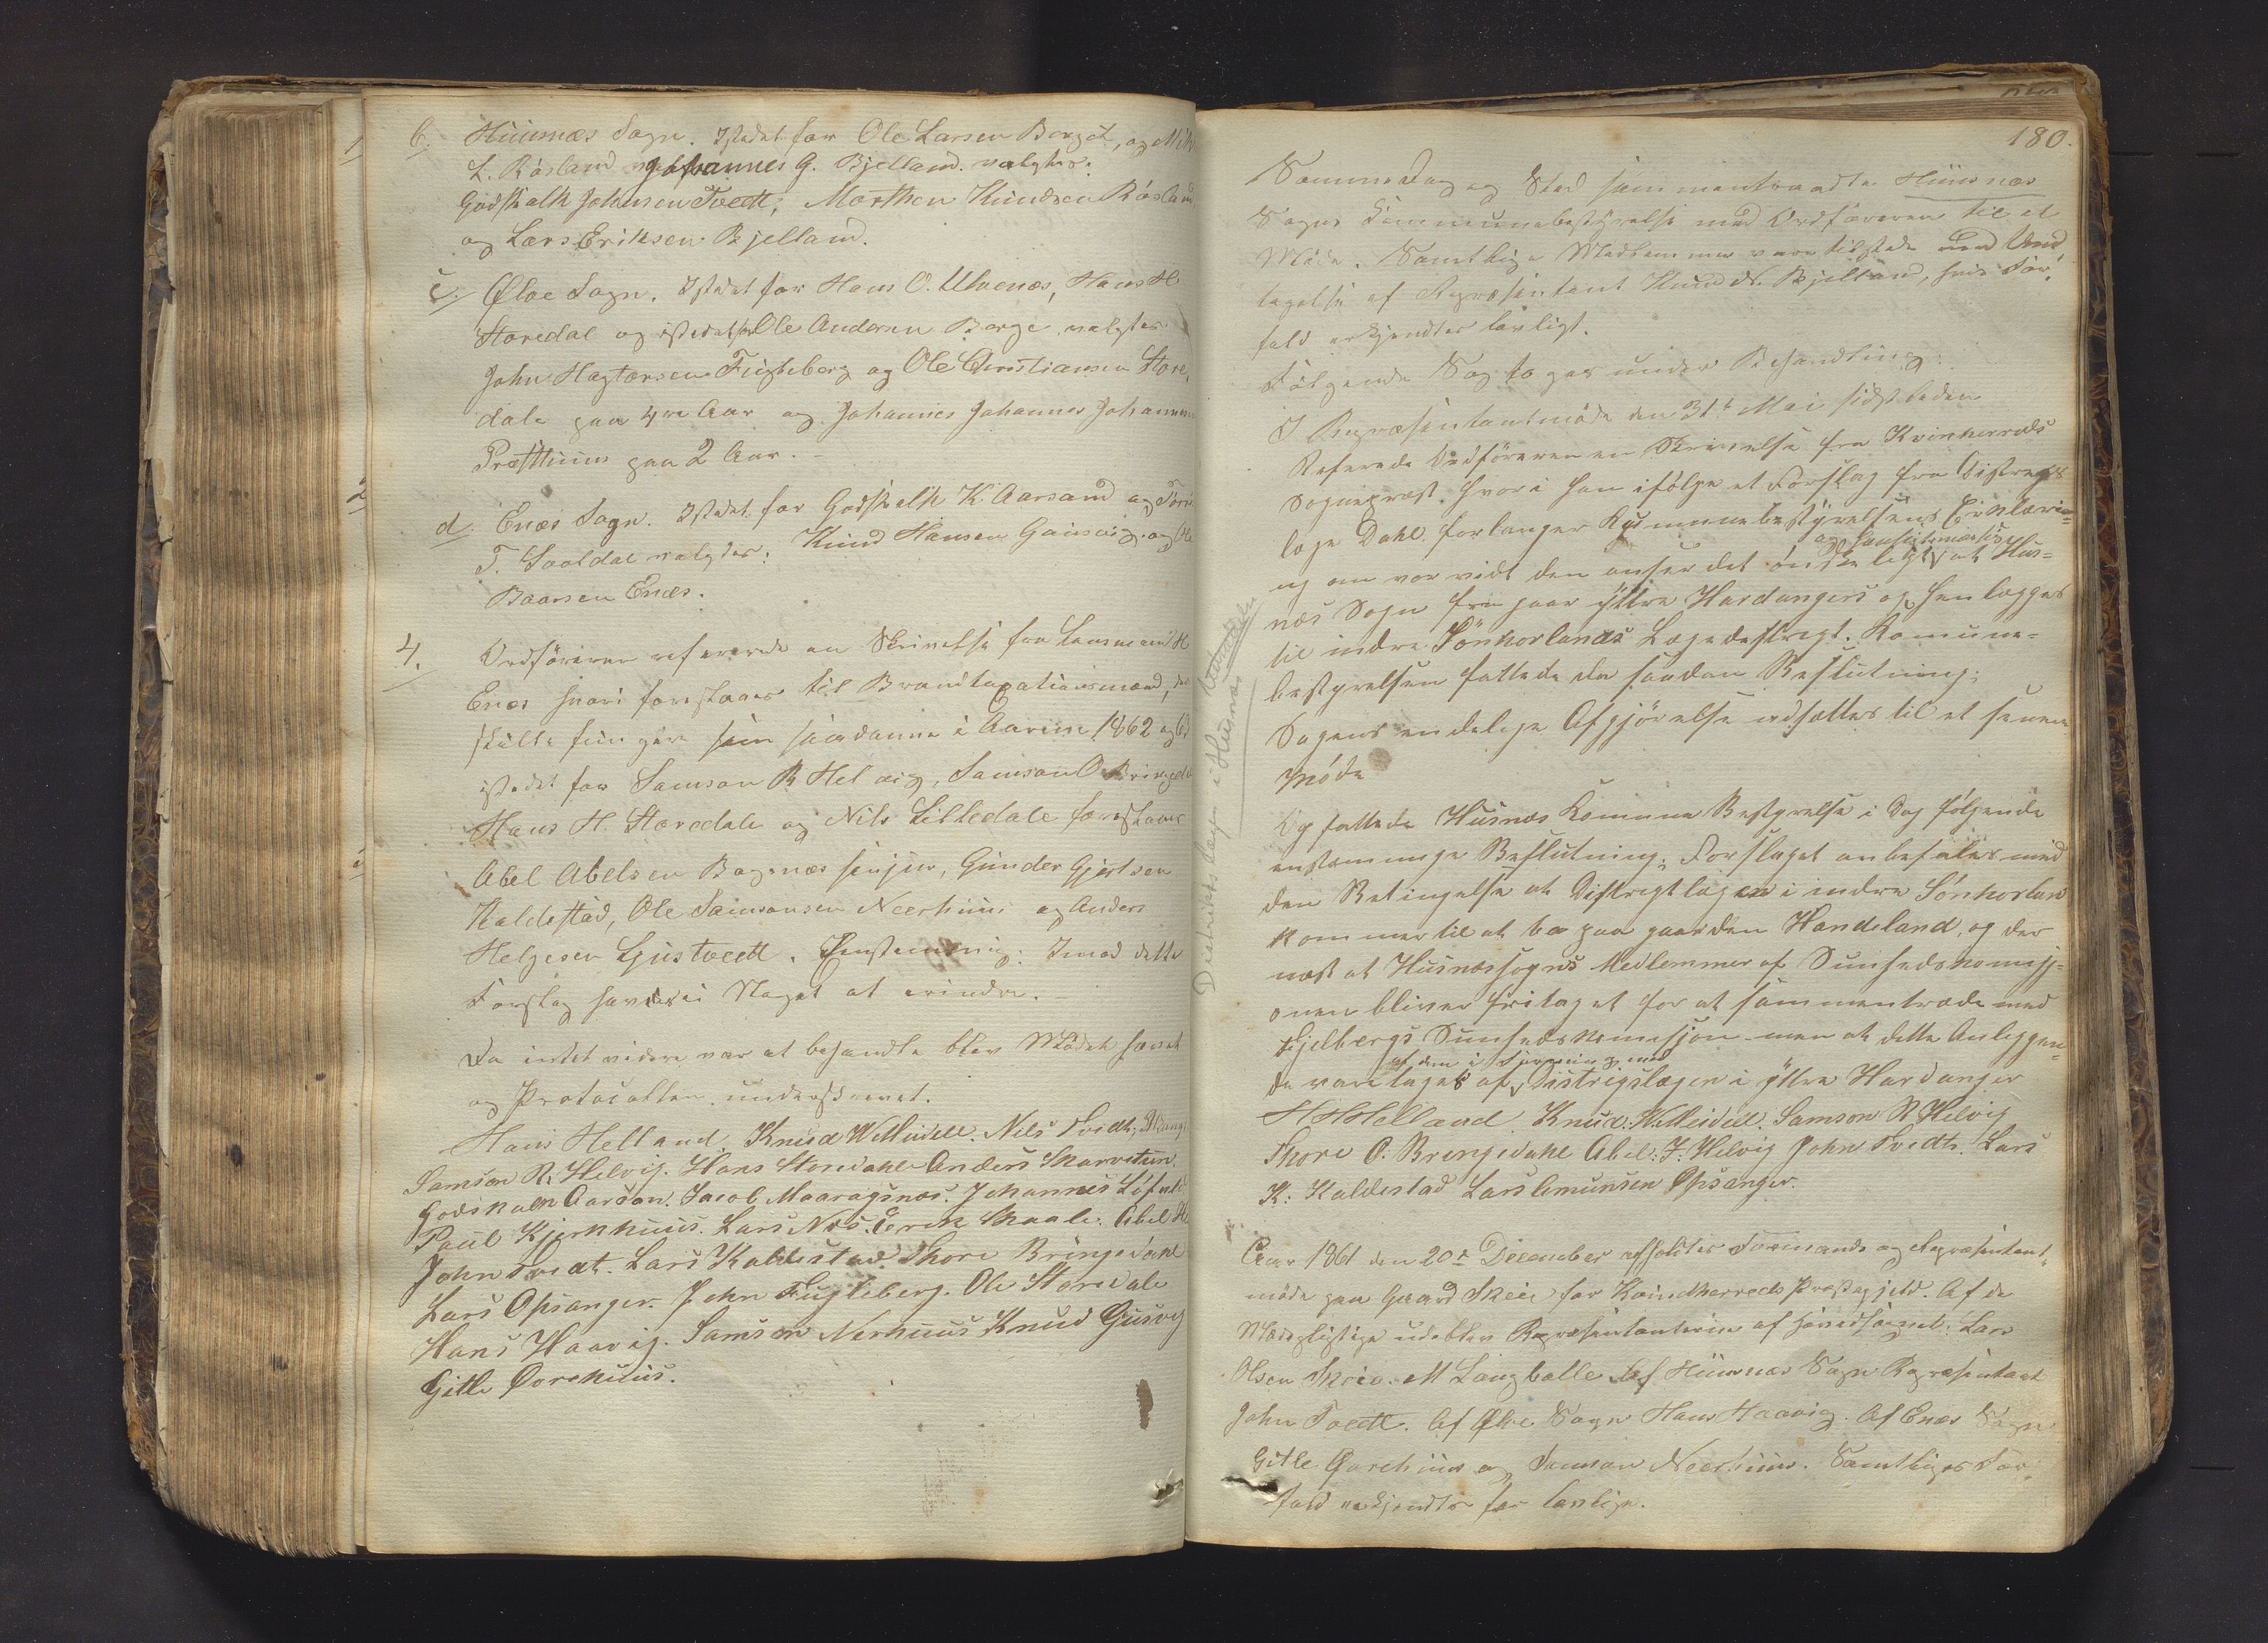 b. Huusnæs Sogn. Istedet for Ole Larsen Borget, og
L. Røsland Johannes G. Bjelland valgtes:
Godskalk Johnsen Tvedt, Morthen Knudsen Røsland
og Lars Eriksen Bjelland.
c. Ølve Sogn. Istedet for Hans O. Ulvenæs, Hans H
Storedal og istedetfor Ole Andersen Berge valgtes
John Hagtorsen Fugleberg og Ole Christiansen Store,
dale paa 4re Aar og Johannes Johannes Johannes
Præsthuus paa 2 Aar.
d Enæs Sogn. Istedet for Godskalk K. Aarsand og
T. Sooldal valgtes: Knud Hansen Gausvig og Ole
Baarsen Enæs.
4. Ordføreren refererede en Skrivelse fra Lensmand H
Enæs hvori foreslaaes til Brandtaxationsmænd,
skulle fungere som saadanne i Aarene 1862 og 63
istedet for Samson R Helvig, Samson O Bringedal
Hans H. Storedale og Nils Lilledale foreslaaes
Abel Abelsen Bagnæs senjur, Gunder Gjertsen
Kaldestad, Ole Samsonsen Neerhuus og Anders
Helgesen Ljustvedt. Eenstemmig: Imod dette
Forslag havdes ei Noget at erindre.
Da intet videre var at behandle blev Mødet hævet
og Protocollen underskrevet.
Hans Helland Knud W Meidell. Nils Tvedt,
Samson R. Helvig. Hans Storedahl Anders Skarvetun
Godskalk Aarsan. Jacob Maaragsnæs. Johannes
Paul Kjerkhuus. Lars Næs. Erek Skaale. Abel
John Tvedt. Lars Kaldestad Thore Bringedahl
Lars Opsanger. John Fugleberg. Ole Storedale
Hans Haavig. Samson Nerhuus Knud Gusvig
Gitle Øvrehuus.
180.
Samme Dag og Sted sammentraadte Huusnæs
Sogns Kommunebestyrelse med Ordføreren til et
Møde. Samtlige Medlemmer vare tilstede med Und
tagelse af Repræsentant Knud N. Bjelland, hvis For,
fald erkjendtes lovligt.
Følgende Sag toges under Behandling:
I Repræsentantmøde den 31te Mai sidstleden
Referede Ordføreren en Skrivelse fra Kvinherreds
Sogneprest hvori han ifølge et Forslag fra Distrikts
læge Dahl forlanger Kommunebestyrelsens Erklæri=
ng om vor vidt den anser det ønskeligt og hensigtsmæssigt at Hus=
næs Sogn fra gaar yttre Hardangers og henlægges
til indre Sønhorlands Lægedestrigt. Komune=
bestyrelsen fattede da saadan Beslutning:
Sagens endelige Afgjørelse udsættes til et senere
Møde
Og fattede Husnæs Komune Bestyrelse i Dag følgende
enstemmige Beslutning: Forslaget anbefales med
den Betingelse at Distrigtlægen i indre Sønhorland
kommer til at bo paa gaarden Handeland, og der
næst at Husnæssogns Medlemmer af Sunhedskomisj=
onen bliver fritaget for at sammentræde med
Fjelbergs Sunhedskomisjon men at dette Anliggen=
de varetages af dem i Forening med Distrigslægen i yttre Hardanger
H H Helland. Knud. W. Meidell. Samson R Helvig
Thore O. Bringedahl Abel: J. Helvig John Tvedt. Lars
K: Kaldestad Lars Omunsen Opsanger.
Distrikts lægen i Husnæs
Aar 1861 den 20de December afholdtes Formands og Repræsentant,
møde paa Gaard Skeie for Kvindherreds Præstegjeld. Af de
Mødepligtige udeblev Repræsentanterne af Hovedsognet: Lars
Olsen Skeie. M Langballe. Af Huusnæs Sogn Repræsentant
John Tvedt. Af Ølve Sogn Hans Haavig. Af Enæs Sogn
Gitle Øvrehuus og Samson Neerhuus. Samtliges For,
fald erkjendtes for lovlige.